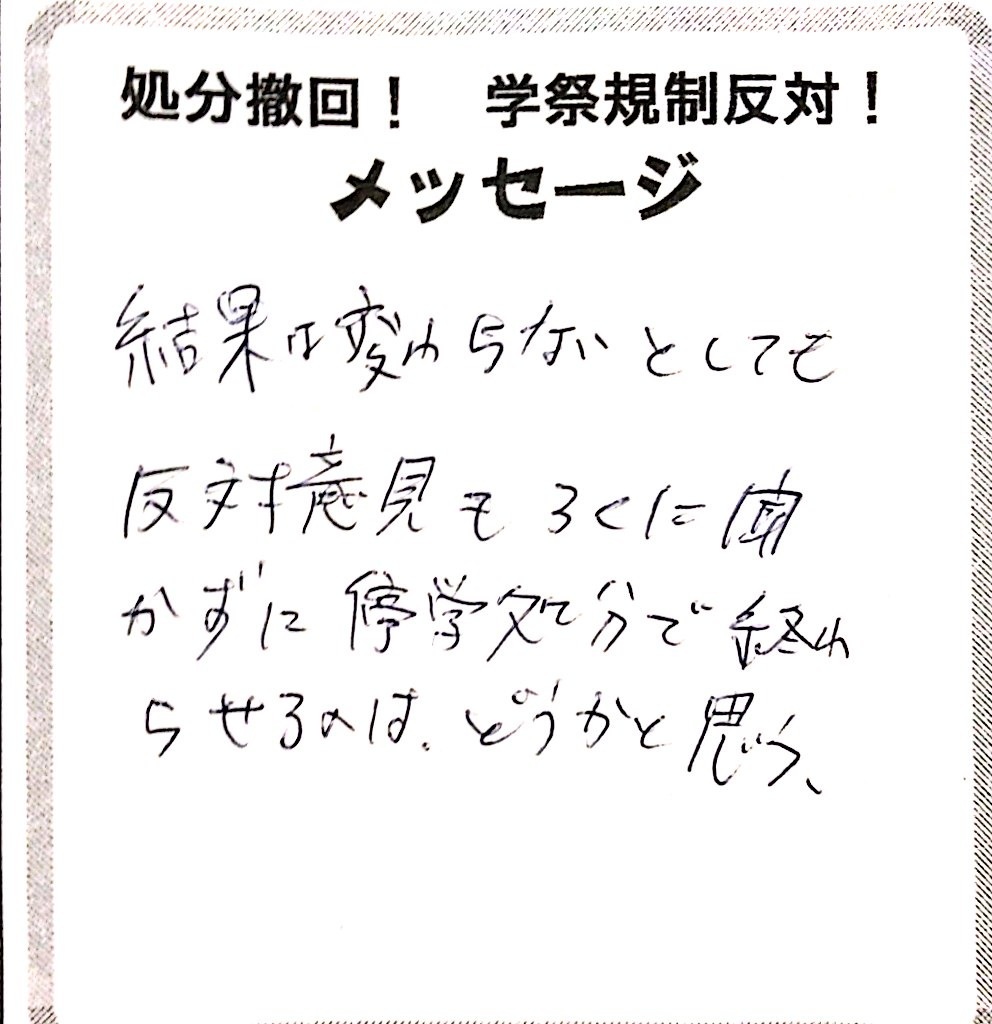 処分撤回！　学祭規制反対！
メッセージ
結果は変わらないとしても
反対意見もろくに聞
かずに停学処分で終わ
らせるのは、どうかと思う、